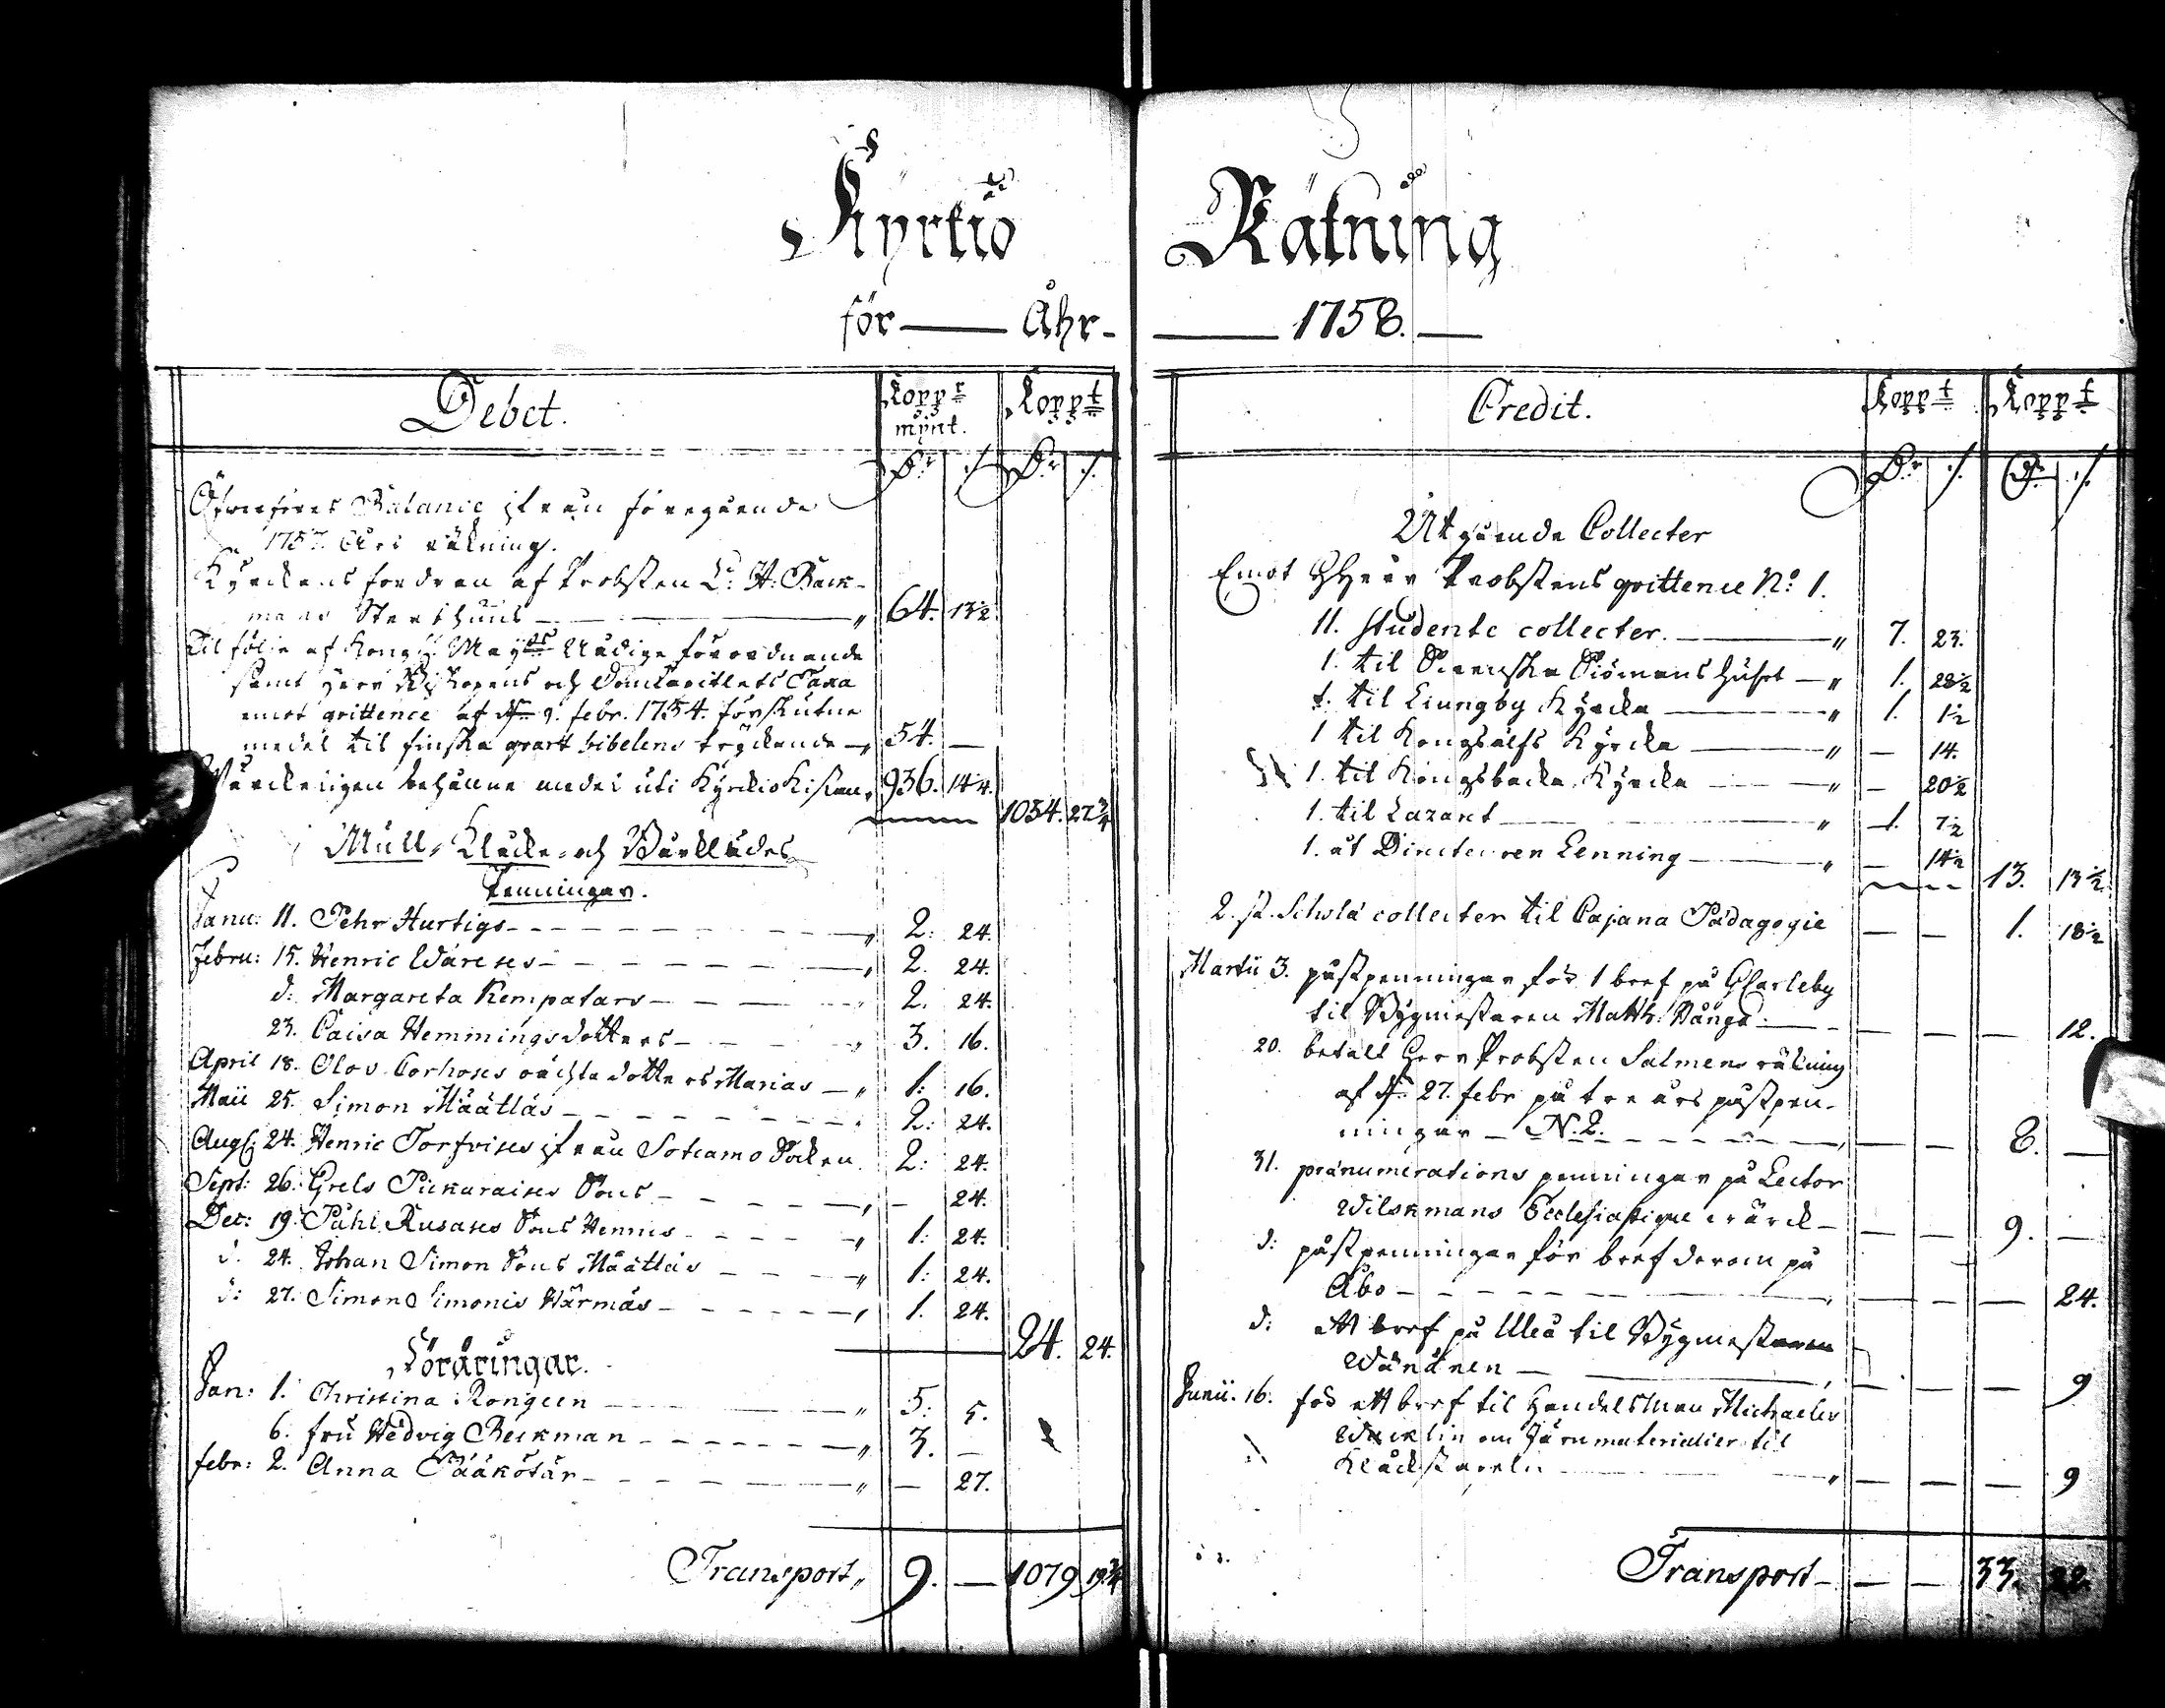 Kyrkio Räkning
för Åhr 1758.
Debet.
Koppr mynt.
Koppt
Dr ./. Dr ./.
Öfverföres Balance ifrån föregående
1757. Års räkning.
Kyrckans fordran af Probsten
Sterbhuus 64. 13½
Til följe af Kongl. Mayts Nådige förordnande
samt Herr Biskopens och Domcapitlets
emot qvittence af d. 9. febr. 1754. förskutne
medel til finska qvart bibelens tryckande 54. —
behållne medel uti Kyrckio Kistan 936. 14¼.
1054. 27¾
Mull, Klåcke och Bårklädes
Penningar.
Janu: 11. Pehr Hurtigs 2. 24.
Febru: 15. Henric Wäreses 2. 24.
d: Margareta Kempatars 2. 24.
23. Caisa Hemmings dotters 3. 16.
April 18. Olos Corhoses oächta dotters Marias 1: 16.
Maii 25. Simon Määttäs 2: 24.
Aug: 24. Henric Torfvises ifrån Sotcamo Sockn 2: 24.
Sept: 26. Grels Pickaraises Sons — 24.
Dec: 19. Påhl Kusases Sons Hennes 1: 24.
d. 24. Johan Simon Sons Määttäs 1: 24.
d: 27. Simon Simonis Härmäs 1. 24.
24. 24.
Föräringar.
Jan: 1. Christina Rongeen 5. 5.
6. fru Hedvig Beckman 3. —
febr: 2. Anna Pääkötär — 27.
Transport 9. — 1079 19¾
Credit.
Koppt
Koppt
Dr ./. Dr ./.
Utgående Collecter
Emot Herr Probstens qvittence No. 1.
11. studente collecter. 7. 23.
1. til Siömans huset 1. 28½
1. til Liungby Kyrcka 1. 1½
1 til Kongsälfs Kyrcka — 14.
1. til Kongsbacka Kyrcka — 20½
1. til Lazaret 1. 7½
1. åt Directeuren Lenning — 14½
13. 13½
2. st. Schola collecter til Cajana Pädagogie — — 1. 18½
Martii 3. påstpenningar för 1 bref på GCarleby
til Bygmästaren Matth. Hånga — — — 12.
20. betalt Herr Probsten Salmens räkning
af d. 27. febr på tre års påstpen-
ningar N. 2. — — 8. —
31. pränumerations penningar på Lector
Wilskmans Ecclesiastique värck — — 9. —
d: påstpenningar för bref derom på
Åbo — — — 24.
d: ett bref på Uleå til Bygmästaren
Wänänen — — — 9
Junii. 16. för ett bref til Handelsman Michaeler
Wacklin om Järnmaterialier til
Klåckstapeln — — — 9
Transport — — 33. 22.